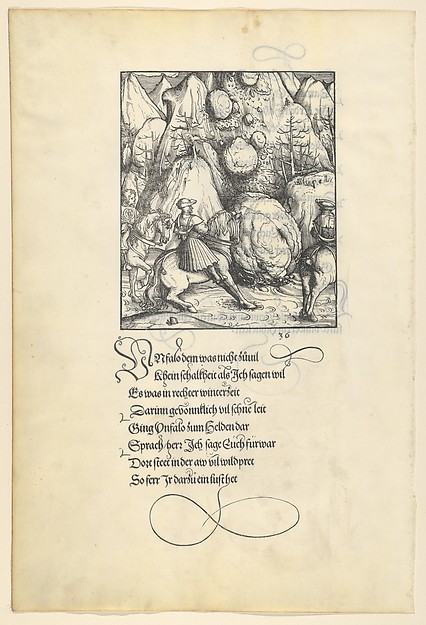 36
VNfalo dem was nicht zuuil
Khein schalkheit als Ich sagen wil
Es was in rechter winterzeit
Darinn gewonnklich vil schne leit
Ging Vnfalo zum Helden dar
Sprach herr Ich sage Euch fürwar
Dort steet in der aw vil wildpret
So ferr Ir darzu ein lust het